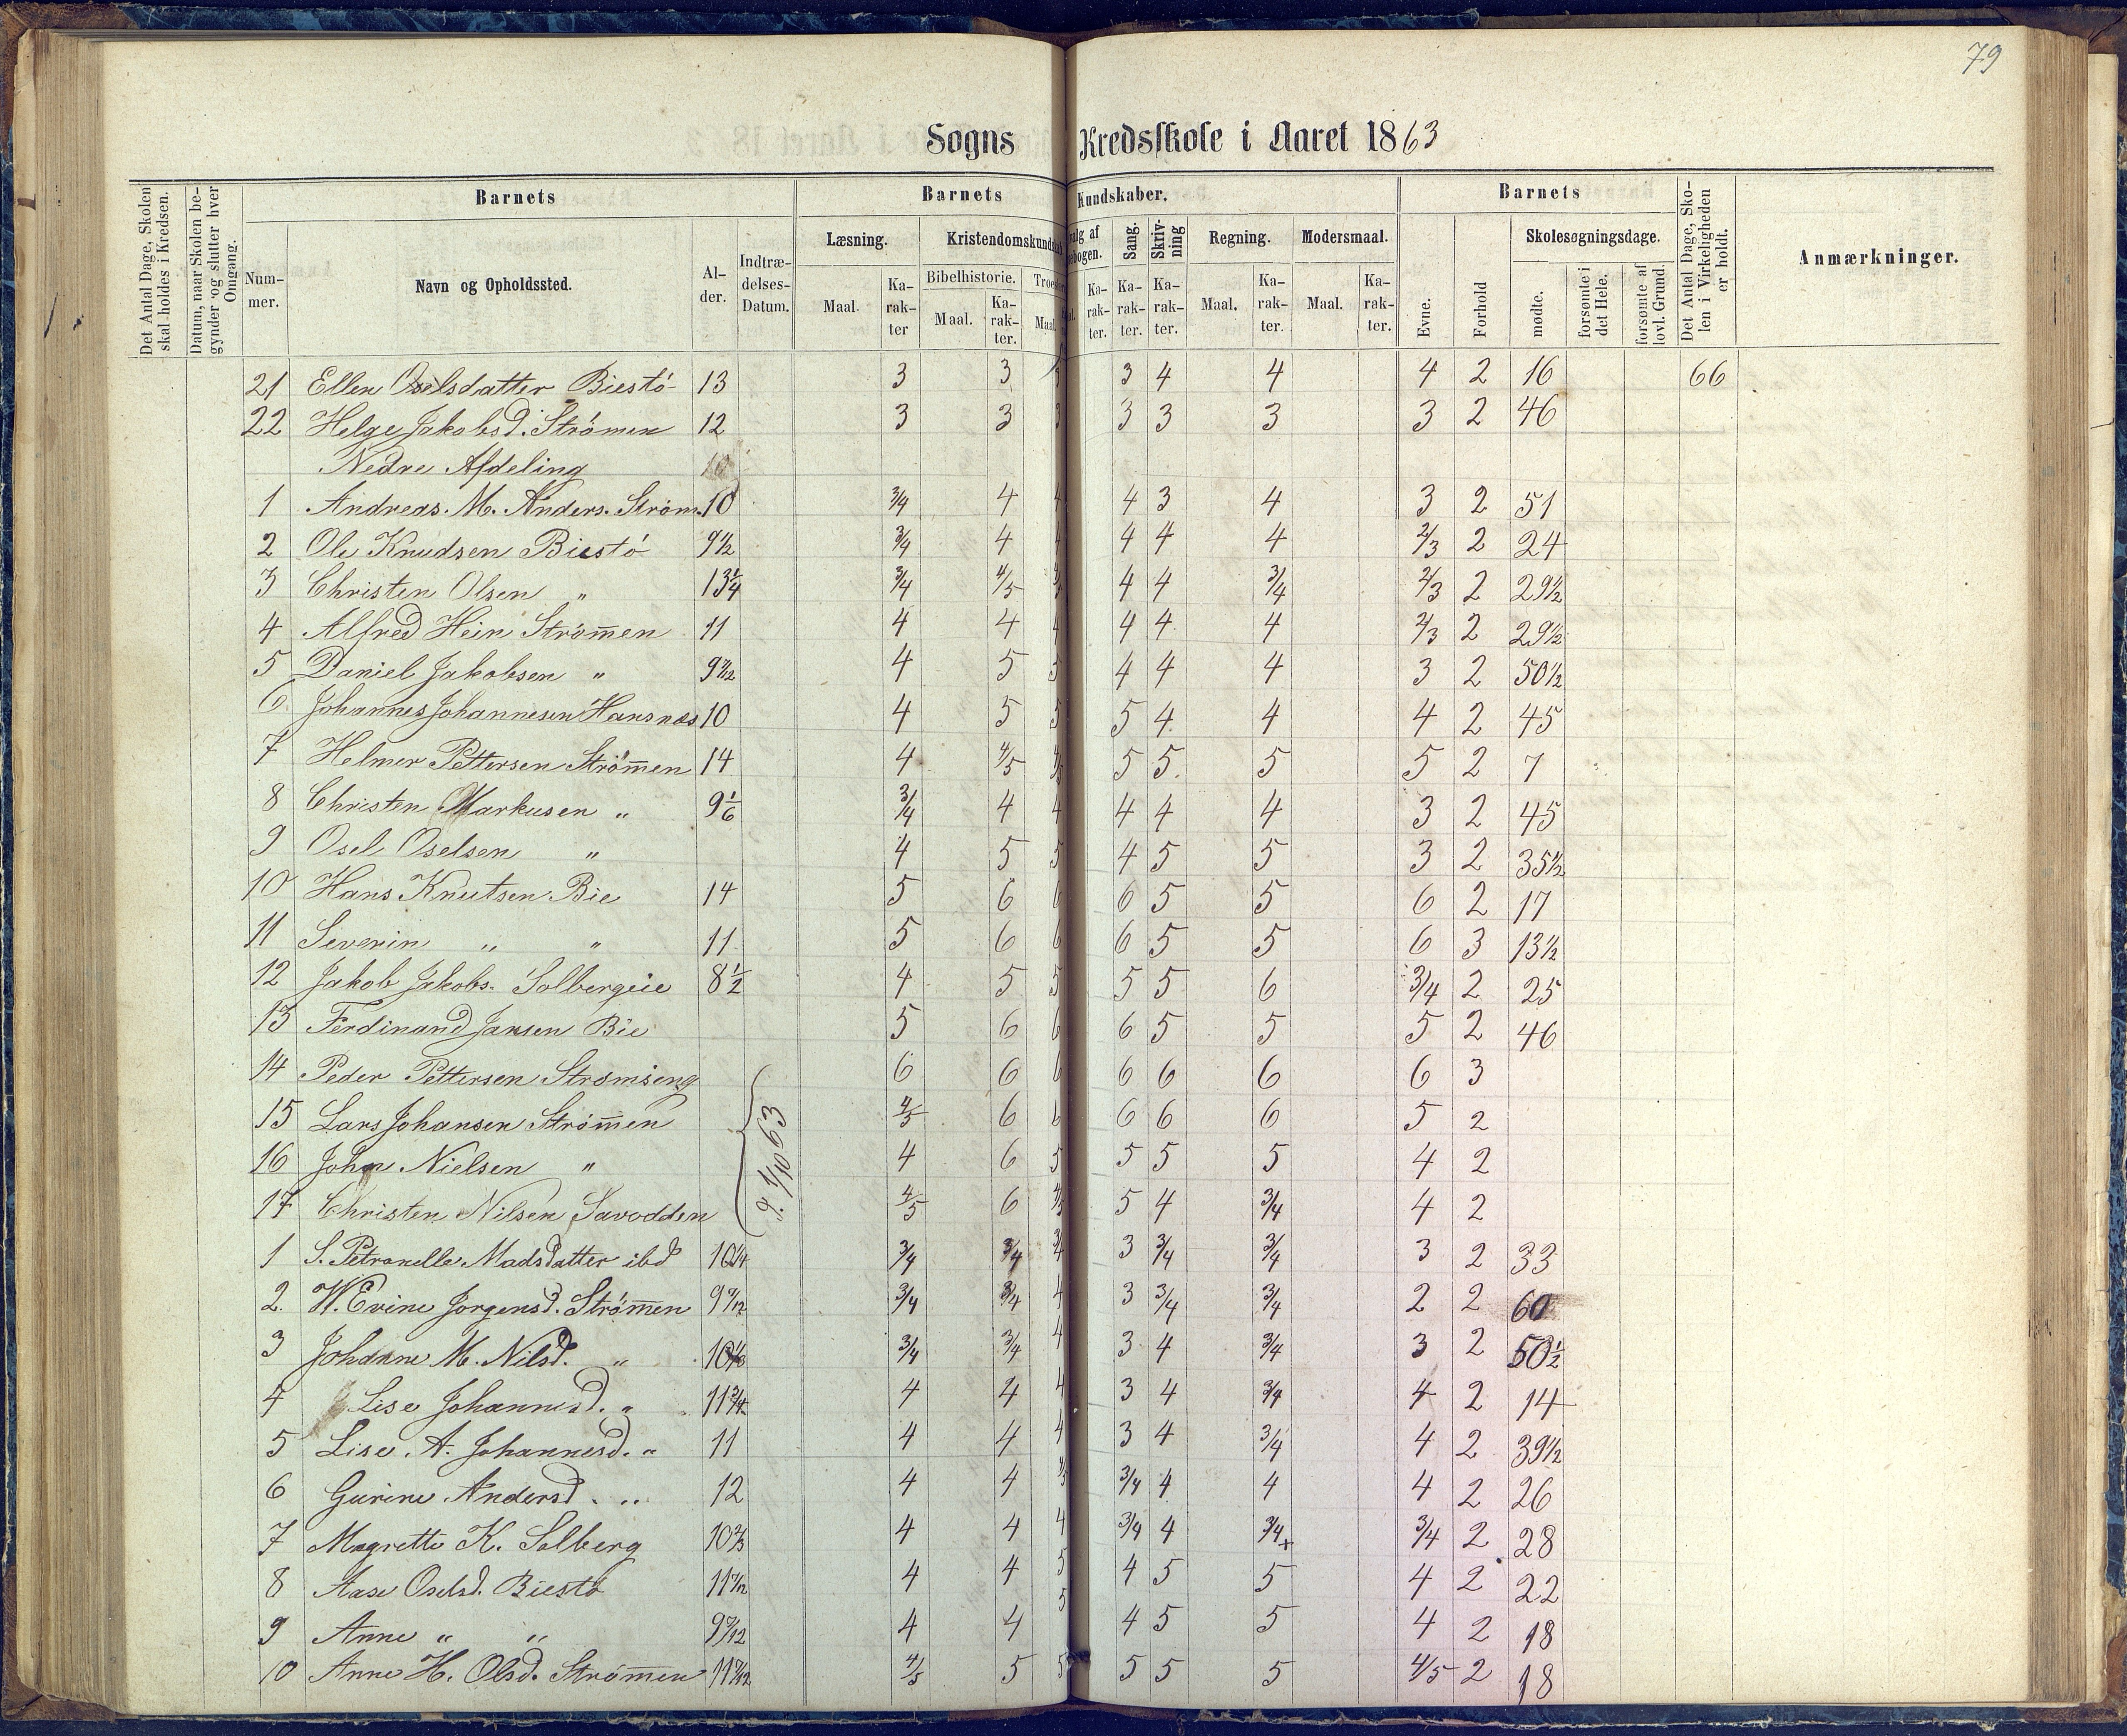 79
Sogns Kredsskole i Aaret 1863
Det Antal Dage, Skolen skal holdes i Kredsen.
Datum, naar Skolen begynder og slutter hver Omgang.
Barnets
Nummer.
Navn og Opholdssted.
Alder.
Indtrædelses-Datum.
Barnets Kundskaber.
Læsning.
Maal.
Karakter
Kristendomskundskab
Bibelhistorie.
Maal.
Karakter.
Maal.
Karakter.
Sang.
Karakter.
Skrivning
Karakter.
Regning.
Maal.
Karakter.
Modersmaal.
Maal.
Karakter.
Barnets
Evne.
Forhold
Skolesøgningsdage.
mødte.
forsømte i det Hele.
forsømte af lovl. Grund.
Det Antal Dage, Skolen i Virkeligheden er holdt.
Anmærkninger.
21 Ellen Oselsdatter Biestø 13 3 3 3 3 4 4 4 2 16 66
22 Helge Jakobsd. Strömen 12 3 3 3 3 3 3 3 2 46
Nedre Afdeling 10
1 Andreas M. Anders. Strøm. 10 3/4 4 4 4 3 4 3 2 51
2 Ole Knudsen Biestø 9½ 3/4 4 4 4 4 4 2/3 2 24
3 Christen Olsen " 13¼ 3/4 4/5 4 4 3/4 2/3 2 29½
4 Alfred Hein Strømen 11 4 4 4 4 4 4 2/3 2 29½
5 Daniel Jakobsen " 4 5 5 4 4 4 3 2 50½
6 Johannes Johannesen Hansnæs 10 4 5 5 5 4 4 4 2 45
7 Helmer Pettersen Strömen 14 4 4/5 4/5 5 5 5 5 2 7
8 Christen Markusen " 9 1/6 3/4 4 4 4 4 4 3 2 45
9 Osel Oselsen " 4 5 5 4 5 5 3 2 35½
10 Hans Knutsen Bie 14 5 6 6 6 5 5 6 2 17
11 Severin " " 11 5 6 6 6 5 5 6 3 13½
12 Jakob Jakobs. Solbergeie 8½ 4 5 5 5 5 6 3/4 2 25
13 Ferdinand Jansen Bie 5 6 6 6 5 5 5 2 46
14 Peder Pettersen Strømseng 6 6 6 6 6 6 6 3
15 Lars Johansen Strömen 4/5 6 6 6 6 6 5 2
16 John Nielsen " 4 6 5 5 5 5 4 2
17 Christen Nilsen Savodden 4/5 6 4/5 5 4 3/4 4 2
1/10 63
1 S. Petronelle Madsdatter ibd 10¼ 3/4 3/4 3/4 3 3/4 3/4 3 2 33
2. W. Evine Jorgensd. Strömen 3/4 3/4 4 3 3/4 3/4 2 2 60
3 Johanne M. Nilsd. " 3/4 3/4 4 3 4 3/4 3 2 50½
4 Lise Johannesd. " 11¾ 4 4 4 3 4 3/4 4 2 14
5 Lise A. Johannesd. " 11 4 4 4 3 4 3/4 4 2 39½
6 Gurine Andersd. " 12 4 4 4/5 3/4 4 4 4 2 26
7 Magrette K. Solberg 10⅔ 4 4 4 3/4 4 3/4+ 3/4 2 28
8 Aase Oselsd. Biestø 4 4 5 4 5 5 4 2 22
9 Anne " " 4 4 5 4 5 5 4 2 18
10 Anne H. Olsd. Strömen 4/5 5 5 5 5 5 4/5 2 18